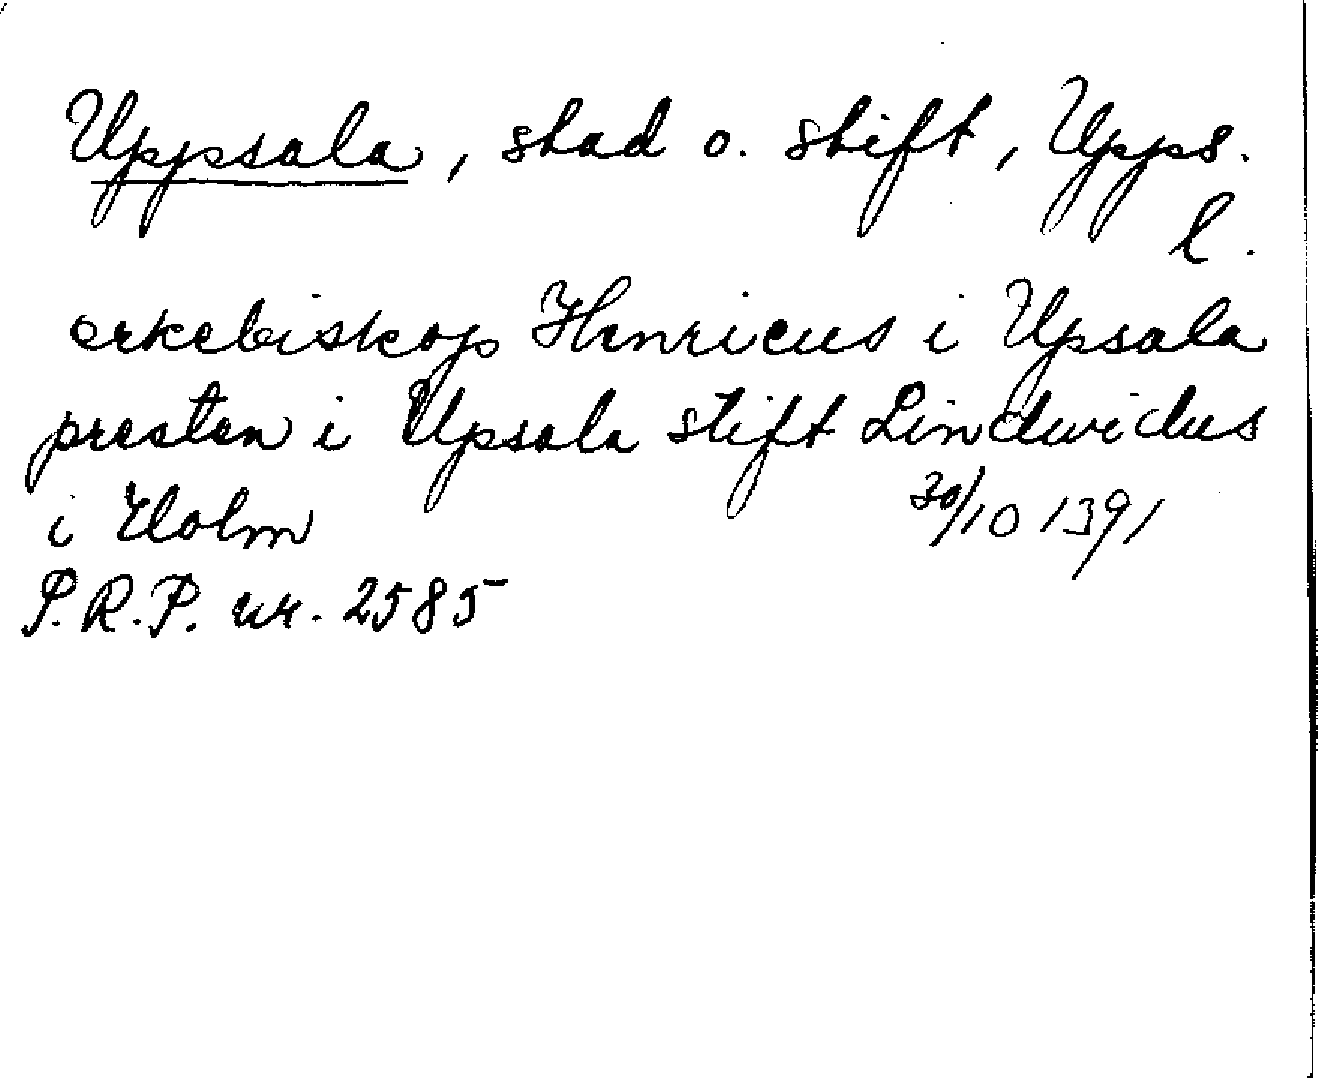 Uppsala, stad o. stift, Upps.
l.
ärkebiskop Henricus i Upsala
prästen i Upsala stift Lindwidus
i Holm 30/10 1391
P.R.P. nr. 2585